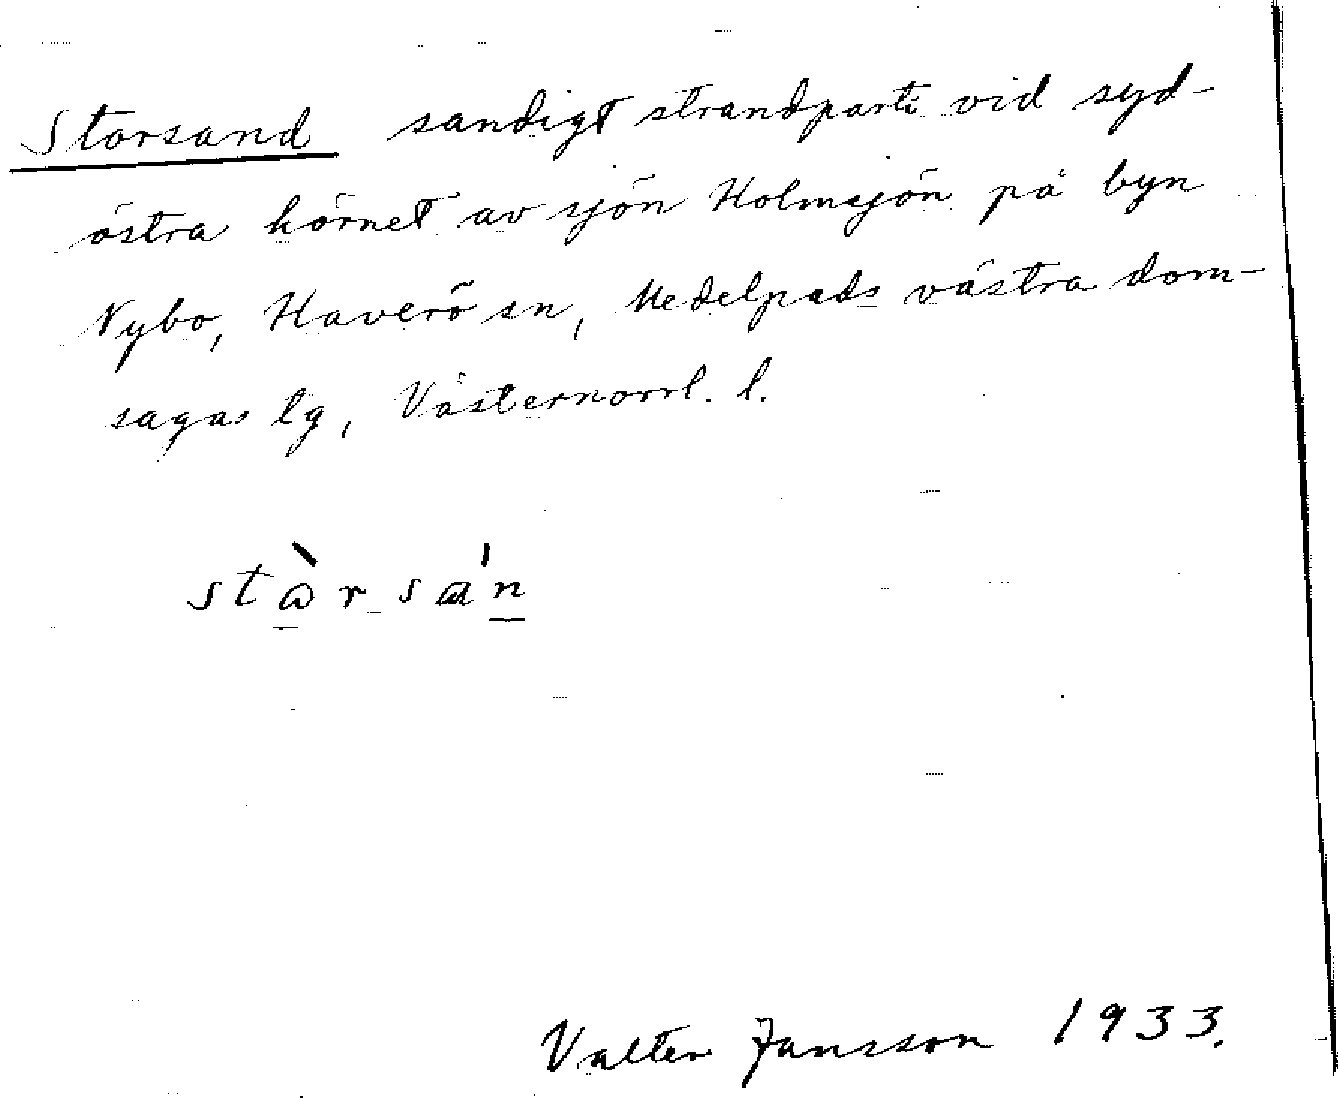 Storsand sandigt strandparti vid syd-
östra hörnet av sjön Holmsjön på byn
Nybo, Haverö sn, Medelpads västra dom-
sagas lg, Västernorrl. l.
stò̱rsa'ṉ
Valter Jansson 1933.